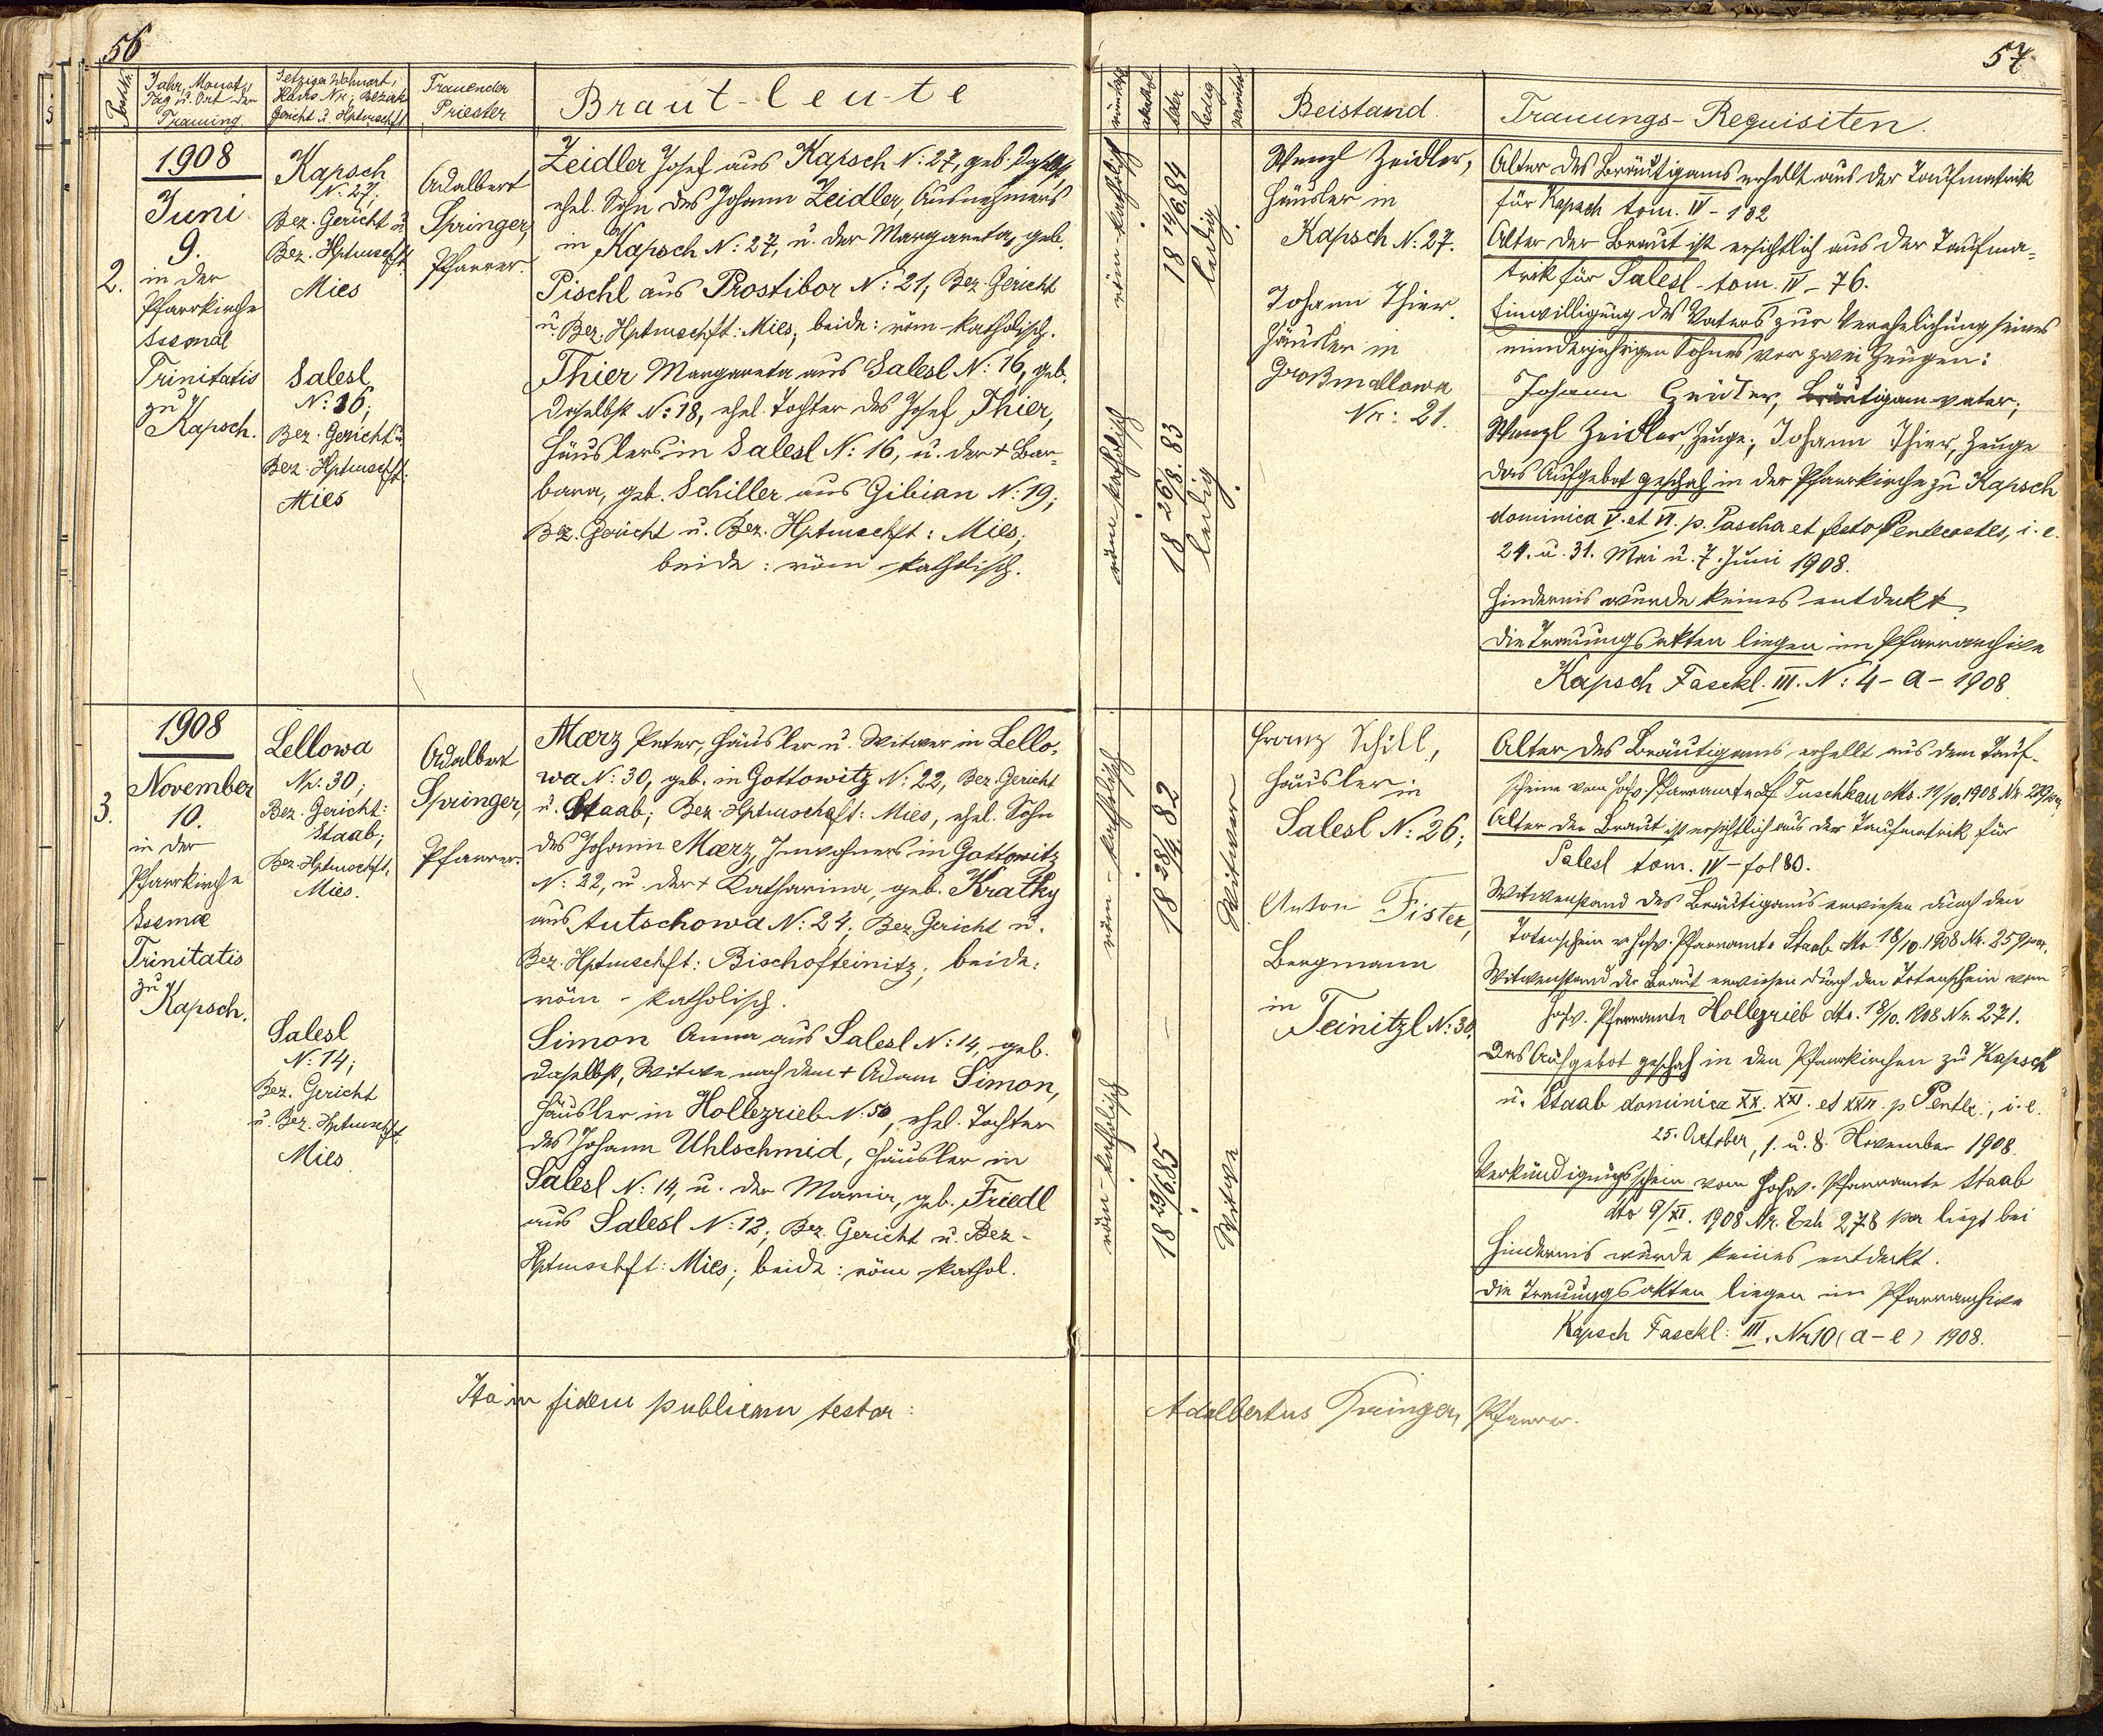 56
Post-Nr.
Jahr, Monat,
Tag u. Ort der
Trauung.
Jetziger Wohnort,
Haus Nr., Bezirks
Gericht u. Hptmschft
Trauender
Priester
Braut-leute
1908
Juni
9.
2.
in der
Pfarrkirche
Ssmae
Trinitatis
zu
Kapsch.
Kapsch
N: 27;
Bez. Gericht u
Bez. Hptmschft.
Mies
Salesl
N: 16;
Bez. Gericht u.
Bez. Hptmschft:
Mies
Adalbert
Springer,
Pfarrer.
Zeidler Josef aus Kapsch N: 27, geb. daselbst,
ehel. Sohn des Johann Zeidler, Ausnehmers
in Kapsch N: 27, u. der Margareta, geb.
Pischl aus Prostibor N: 21, Bez. Gericht
u. Bez. Hptmschft: Mies; beide: röm-katholisch.
Thier Margareta aus Salesl N: 16, geb.
daselbst N: 18, ehel. Tochter des Josef Thier,
Häuslers in Salesl N: 16, u. der + Bar=
bara, geb. Schiller aus Gibian N: 19;
Bez. Gericht u. Bez. Hptmschft: Mies;
beide: röm-katholisch.
1908
November
10.
3.
in der
Pfarrkirche
Ssmae
Trinitatis
zu
Kapsch.
Lellowa
N: 30;
Bez. Gericht:
Staab;
Bez. Hptmschft.
Mies.
Salesl
N: 14;
Bez. Gericht
u. Bez. Hptmschft.
Mies
Adalbert
Springer,
Pfarrer.
Maerz Peter, Häusler u. Witwer in Lello=
wa N: 30, geb. in Gottowitz N: 22, Bez. Gericht
u. Staab; Bez. Hptmschaft: Mies, ehel. Sohn
des Johann Maerz, Inwohners in Gottowitz
N: 22, u. der + Katharina, geb. Kratky
aus Autschowa N: 24. Bez. Gericht u.
Bez. Hptmschft: Bischofteinitz; beide:
röm-katholisch.
Simon Anna aus Salesl N: 14, geb.
daselbst, Witwe nach dem + Adam Simon,
Häusler in Hollezrieb N: 50, ehel. Tochter
des Johann Uhlschmid, Häusler in
Salesl N: 14, u. der Maria, geb. Friedl
aus Salesl N: 12; Bez. Gericht u. Bez-
Hptmschft: Mies; beide: röm-kathol.
Ita in fidem publicam testor:
57
Alter
ledig
verwitw
Beistand.
Trauungs-Requisiten.
röm-katholisch
18 14/6. 84
ledig.
röm-katholisch
18 26/8. 83
ledig.
Wenzl Zeidler,
Häusler in
Kapsch N: 27.
Johann Thier
Häusler in
Großmallowa
Nr: 21.
Alter des Bräutigams erhellt aus der Taufmatrik
für Kapsch tom. IV - 102
Alter der Braut ist ersichtlich aus der Taufma=
trik für Salesl - tom. IV - 76.
Einwilligung des Vaters zur Verehelichung seines
minderjährigen Sohnes vor zwei Zeugen:
Johann Zeidler, Bräutigamvater;
Wenzl Zeidler, Zeuge; Johann Thier, Zeuge
Das Aufgebot geschah in der Pfarrkirche zu Kapsch
dominica V. et VI. p. Pascha et festo Pentecostes, i. e.
24. u. 31. Mai u. 7. Juni 1908.
Hindernis wurde keines entdeckt
Die Trauungsakten liegen im Pfarrarchive
Kapsch Fasckl. III. N: 4 - a - 1908.
röm-katholisch
18 28/4 82
Witwer
röm-katholisch
18 29/6. 85
Witwe
Franz Schill,
Häusler in
Salesl N: 26;
Anton Fister,
Bergmann
in
Teinitzl N: 30.
Alter des Bräutigams erhellt aus dem Tauf-
scheine vom hochw. Pfarramte Tuschkau dto. 19/10. 1908 Nr.
Alter der Braut ist ersichtlich aus der Taufmatrik für
Salesl tom. IV - fol 80.
Witwenstand des Bräutigams erwiesen durch den
Totenschein v. hochw. Pfarramte Staab dto 18/10. 1908 Nr. 259
Witwenstand der Braut erwiesen durch den Totenschein vom
hochw. Pfarramte Hollezrieb dto. 18/10. 1908 Nr. 271.
Das Aufgebot geschah in den Pfarrkirchen zu Kapsch
u. Staab dominica XX. XXI. et XXII. p. Pentec., i. e.
25. October, 1. u. 8. November 1908.
Verkündigungsschein vom hochw. Pfarramte Staab
dto 9/XI. 1908 Nr. Exh 278 liegt bei
Hindernis wurde keines entdeckt.
Die Trauungsakten liegen im Pfarrarchive
Kapsch Fasckl: III. Nr 10 (a-e) 1908.
Adalbertus Springer, Pfarrer.